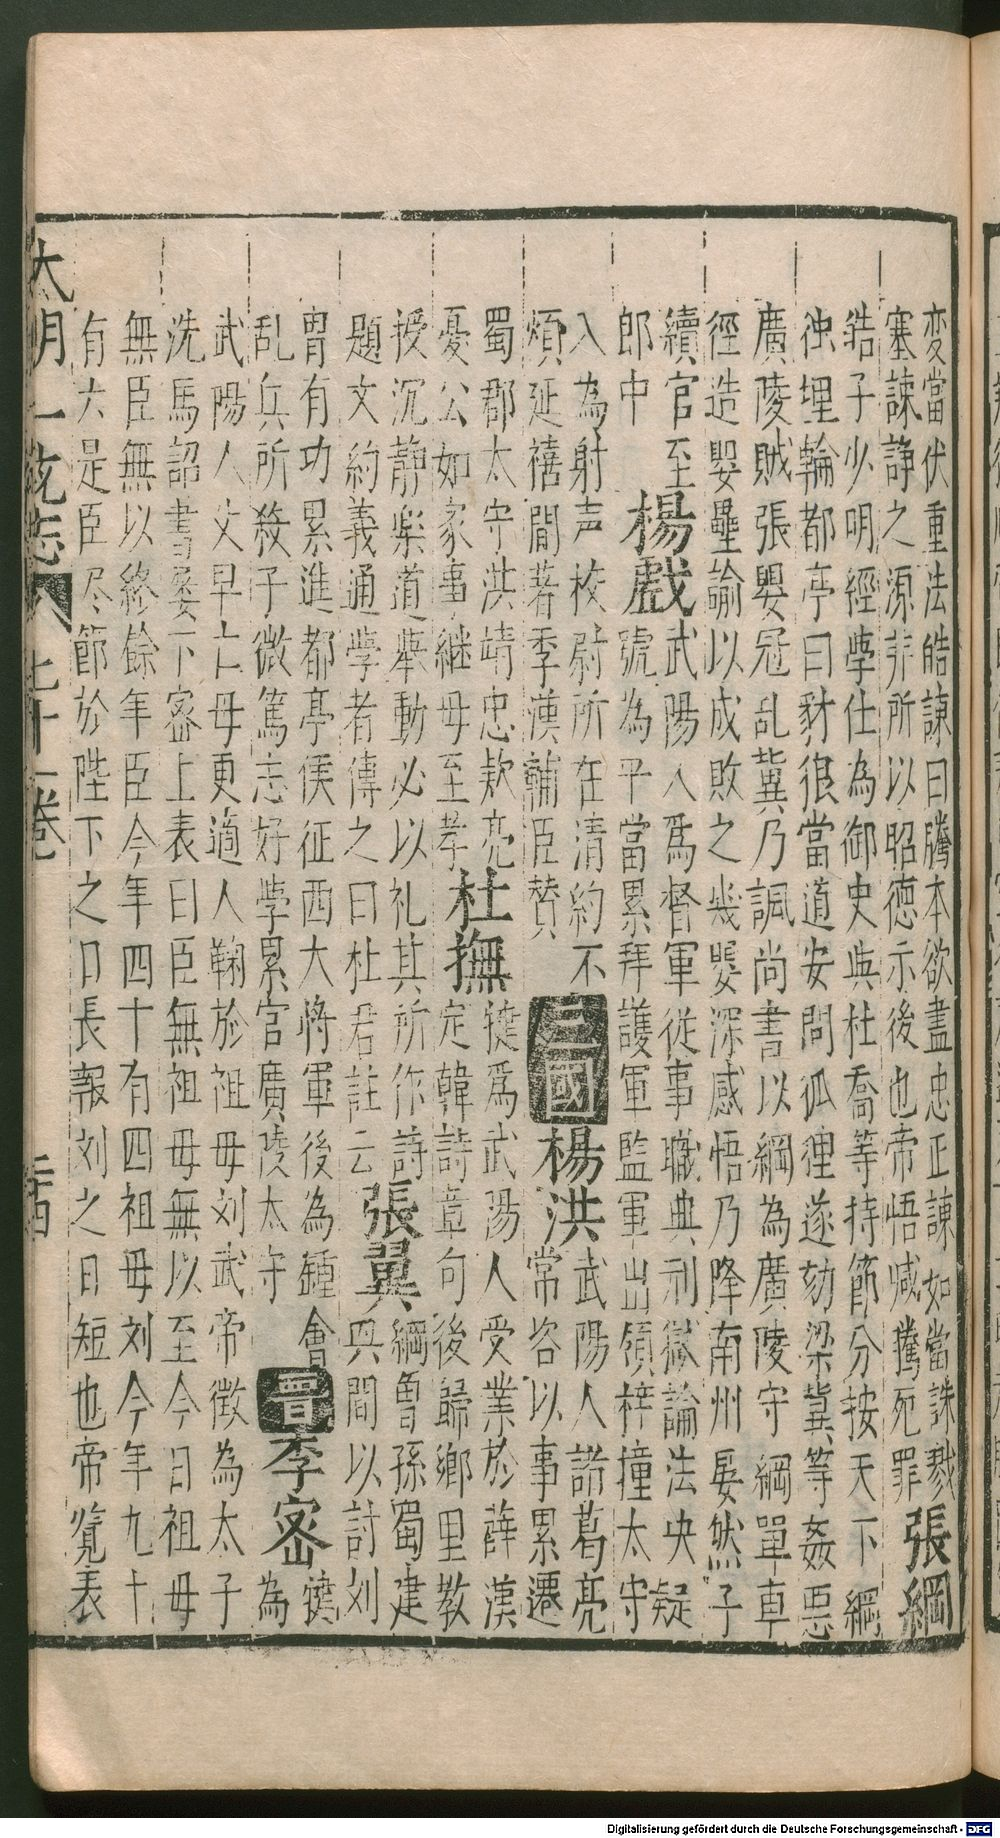 变當伏重法皓諌曰騰本欲盡忠正諌如當誅戮
塞諫諍之源非所以昭德示後也帝悟减騰死罪
張綱
皓子少明經學仕為御史與杜喬等持節分按天下綱
独埋輪都亭曰豺狼當道安問狐狸遂劾梁冀等姦惡
廣陵賊張嬰冦乱冀乃諷尚書以綱為廣陵守綱單車
徑造嬰壘諭以成敗之幾嬰深感悟乃降南州晏然子
續官至
郎中
楊戯
武陽人爲督軍從事職典刑獄論法决疑
號為平當累拜護軍監軍出領梓撞太守
入為射声校尉所在清約不
煩延禧間著季漢輔臣赞
三國
楊洪
武陽人諸葛亮
常咨以事累遷
蜀郡太守洪靖忠欵亮
憂公如家事継母至孝
杜撫
犍爲武陽人受業於薛漢
定韓詩章句後歸鄉里教
授沉静樂道舉動必以礼其所作詩
題文約義通學者傳之曰杜君註云
張翼
綱曾孫蜀建
興間以討刘
胄有功累進都亭侯征西大將軍後為鍾會
乱兵所殺子微篤志好學累官廣陵太守
晋
李宻
犍
為
武陽人父早亡母更適人鞠於祖母刘武帝徵為太子
洗馬詔書累下宻上表曰臣無祖母無以至今日祖母
無臣無以終餘年臣今年四十有四祖母刘今年九十
有六是臣尽節於陛下之日長報刘之日短也帝覧表
大明一統志 七十一卷
Digitalisierung gefördert durch die Deutsche Forschungsgemeinschaft - DFG